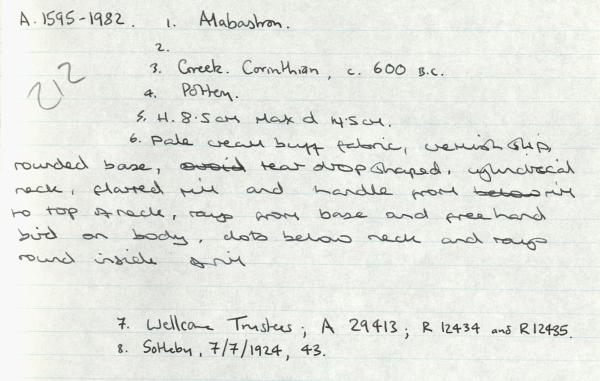 A.1595-1982. 1. Alabastron.
2.
212
3. Greek. Corinthian, c. 600 B.C.
4. Pottery.
5. H. 8.5cm Max d 4.5cm.
6. Pale cream buff fabric, slip
rounded base, ovoid tear drop shaped, cylindrical
neck, flatted rim and handle from below rim
to top of neck, rays from base and freehand
bird on body, dots below neck and rays
round inside of rim
7. Wellcome Trustees; A 29413; R 12434 and R12435.
8. Sotheby, 7/7/1924, 43.